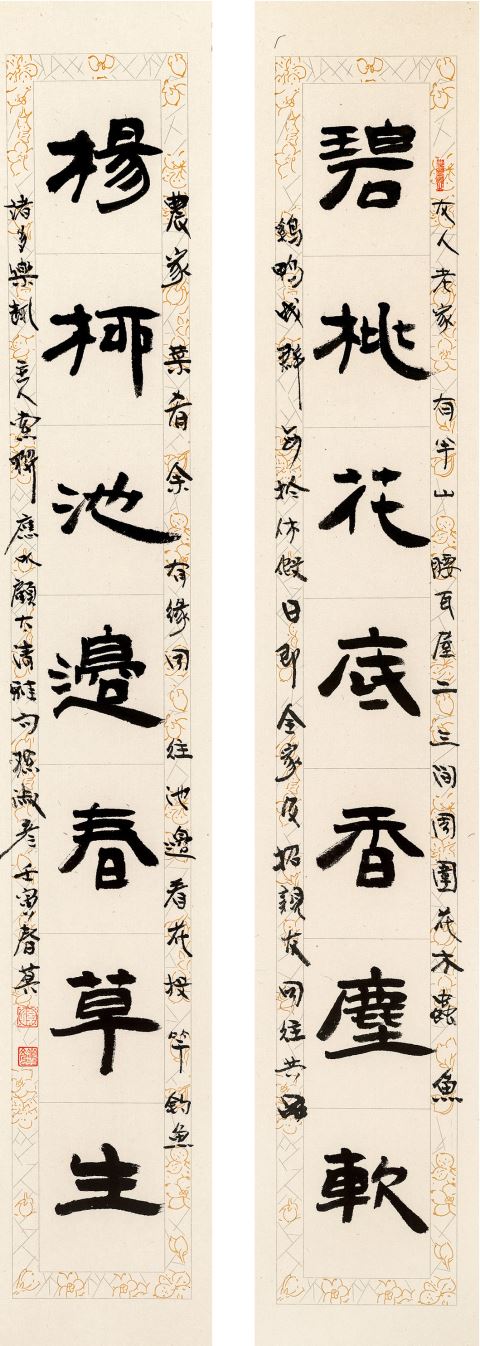 友人老家有半山腰瓦屋二三間周圍花木蟲魚
碧桃花底香塵軟
鷄鴨成群每於休假日即全家及招親友同往共品
農家菜肴余有緣同往池邊看花投竿釣魚
楊柳池邊春草生
諸多樂趣主人索聯應以顧太清雅句孫淑彥壬寅春莫